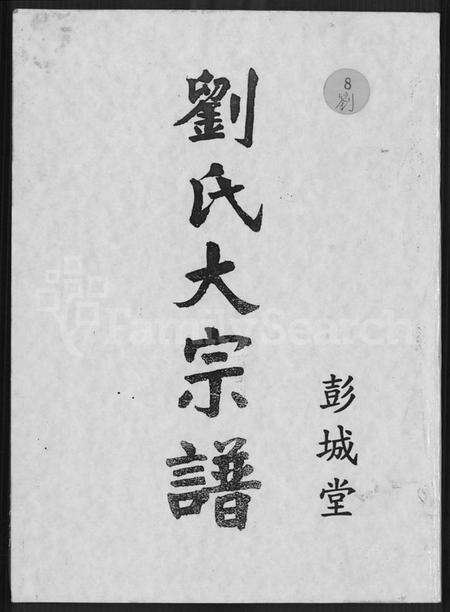 8
劉
劉氏大宗譜
彭城堂
FamilySearch